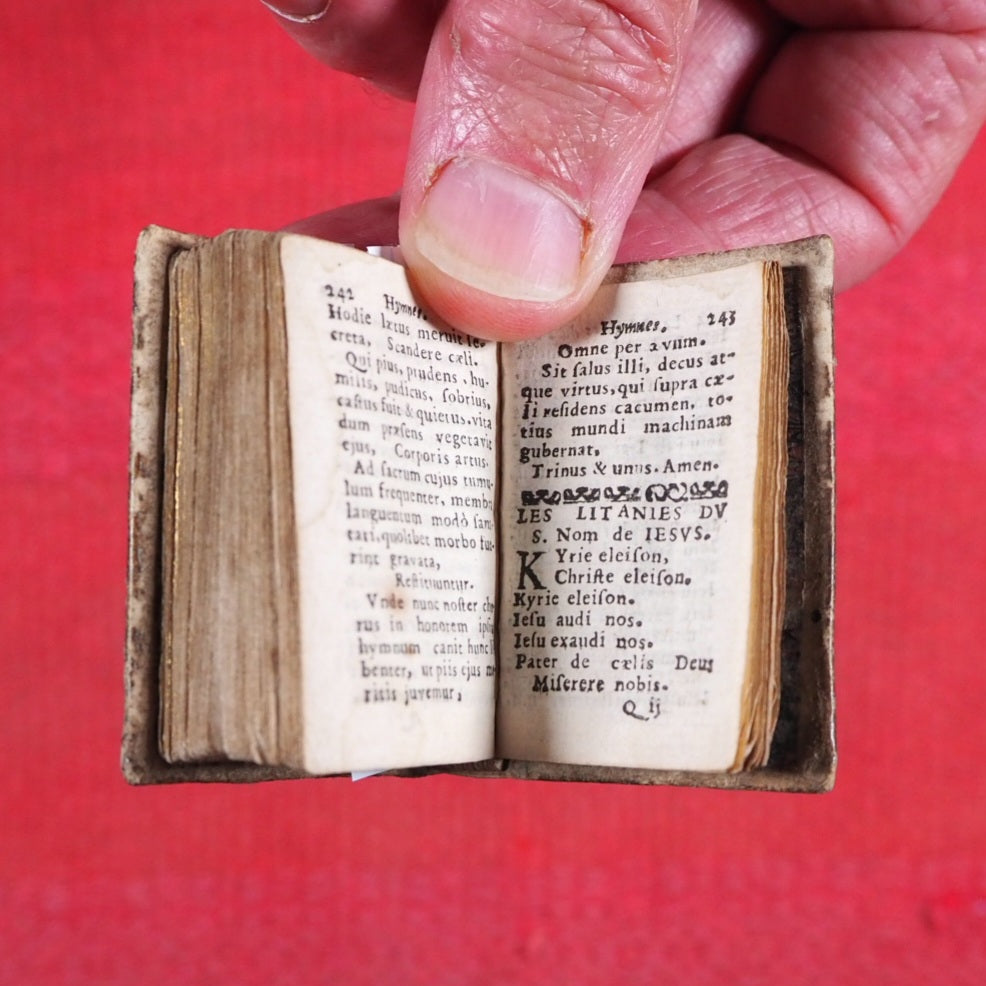 242 Hymnes.
Hodie lætus meruit ſe-
creta, Scandere cæli.
Qui pius, prudens, hu-
milis, pudicus, ſobrius,
caſtus fuit & quietus, vita
dum præſens vegetavit
ejus, Corporis artus.
Ad ſacrum cujus tumu-
lum frequenter, membra
languentum modò ſani-
tati, quolibet morbo fue-
rint gravata,
Reſtituuntur.
Vnde nunc noſter cho
rus in honorem ipſi
hymnum canit hunc
benter, ut piis ejus me
ritis juvemur,
Hymnes. 243
Omne per ævum.
Sit ſalus illi, decus at-
que virtus, qui ſupra cæ-
li reſidens cacumen, to-
tius mundi machinam
gubernat,
Trinus & unus. Amen.
LES LITANIES DV
S. Nom de IESVS.
KYrie eleiſon,
Chriſte eleiſon.
Kyrie eleiſon.
Ieſu audi nos.
Ieſu exaudi nos.
Pater de cælis Deus
Miſerere nobis.
Q ij